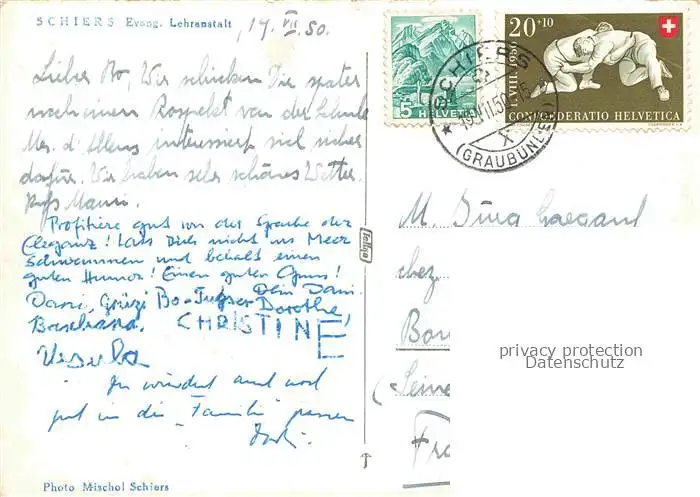 SCHIERS Evang. Lehranstalt
17. VII 50.
Lieber Bo, Wir schicken Dir später
noch einen Prospekt von der Schule
Mrs. d' Allens interessiert sich sicher
dafür. Wir haben sehr schönes Wetter.
Kuss Mami.
Profitiere gut von der Sprache der
Eleganz! Lass Dich nicht ins Meer
schwemmen und behalt einen
guten Humor! Einen guten Gruss!
Dein
Bo
Dorothe,
CHRISTINE
Ursula
Du würdest auch noch
gut in die "Familie" passen
Photo Mischol Schiers
5
HELVETIA
20+10
1. VIII. 1950
CONFOEDERATIO HELVETICA
SCHIERS
(GRAUBÜNDEN)
X
M. Jürg
chez
Bou
(Seine
Fra
privacy protection
Datenschutz